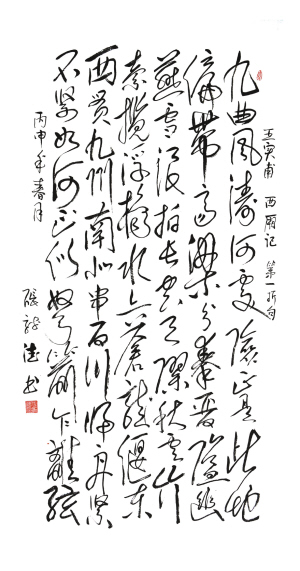 九曲風濤何處險正是此地
偏帶齊梁分秦晉隘幽
燕雪浪拍長空天際秋雲卷竹
索攬浮橋水上蒼龍偃東
西貫九州南北串百川歸舟緊
不緊如何見似弩箭乍離弦
王實甫 西廂記 第一折句
丙申年春月
張 書